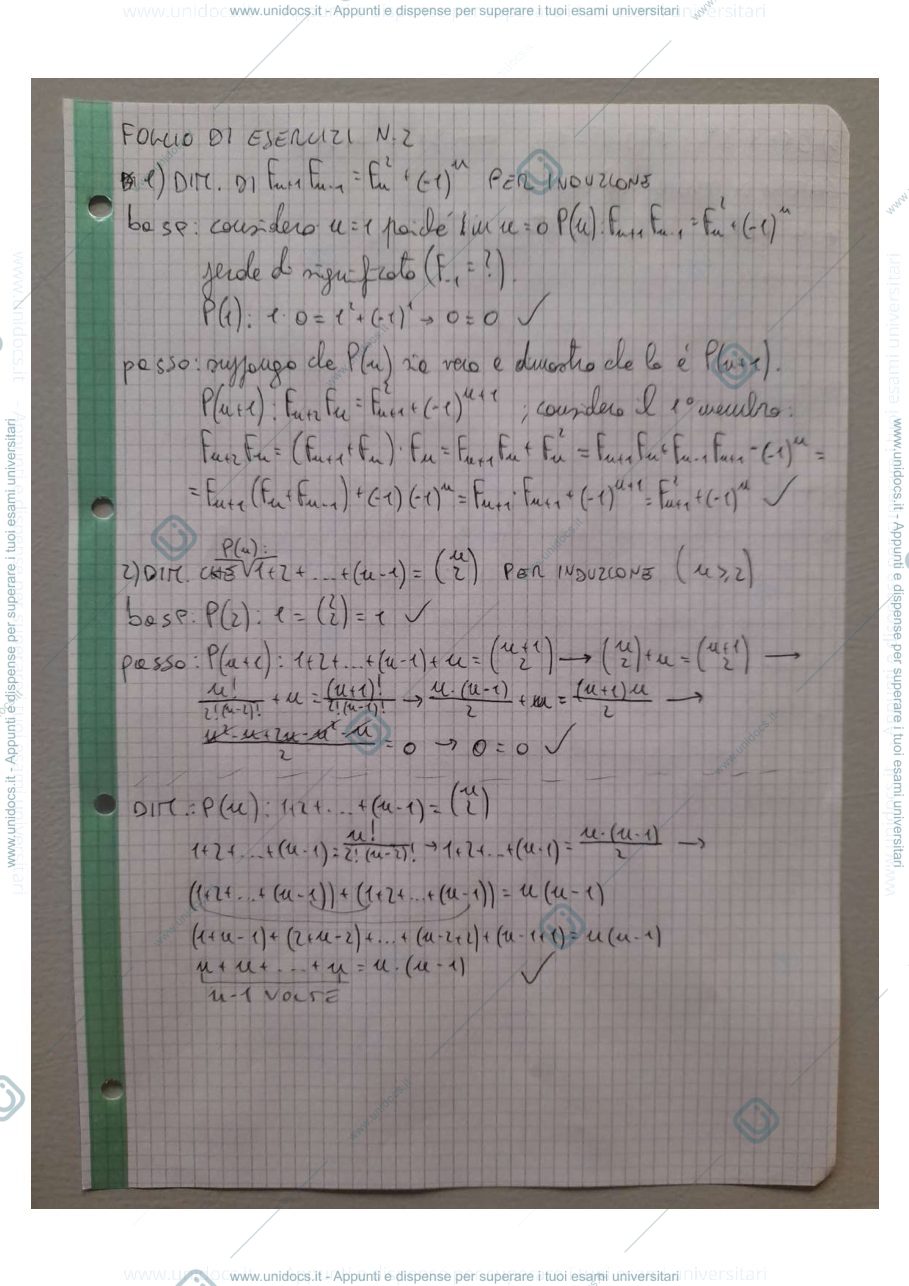 www.unidocs.it - Appunti e dispense per superare i tuoi esami universitari
FOGLIO DI ESERCIZI N.2
1) DIM. DI Fn+1 Fn-1 = Fn² + (-1)^n PER INDUZIONE
base: considero n=1 poiché in n=0 P(n): Fn+1 Fn-1 = Fn² + (-1)^n
perde di significato (F-1 = ?).
P(1): 1·0 = 1² + (-1)¹ → 0=0 ✓
passo: suppongo che P(n) sia vera e dimostro che lo è P(n+1).
P(n+1): Fn+2 Fn = Fn+1² + (-1)^n+1 ; considero il 1° membro:
Fn+2 Fn = (Fn+1 + Fn)·Fn = Fn+1 Fn + Fn² = Fn+1 Fn + Fn-1 Fn+1 - (-1)^n =
= Fn+1 (Fn + Fn-1) + (-1)(-1)^n = Fn+1·Fn+1 + (-1)^n+1 = Fn+1² + (-1)^n ✓
P(n):
2) DIM. CHE 1+2+....+(n-1) = (n 2) PER INDUZIONE (n≥2)
base: P(2): 1 = (2 2) = 1 ✓
passo: P(n+1): 1+2+...+(n-1)+n = (n+1 2) → (n 2) + n = (n+1 2) →
n!/2!(n-2)! + n = (n+1)!/2!(n-1)! → n·(n-1)/2 + n = (n+1)n/2 →
n²-n+2n-n²-n/2 = 0 → 0=0 ✓
DIM.: P(n): 1+2+...+(n-1) = (n 2)
1+2+...+(n-1) = n!/2!(n-2)! → 1+2+...+(n-1) = n·(n-1)/2 →
(1+2+...+(n-1))+(1+2+...+(n-1)) = n(n-1)
(1+n-1)+(2+n-2)+...+(n-2+2)+(n-1+1) = n(n-1)
n+n+....+n = n·(n-1) ✓
n-1 VOLTE
www.unidocs.it - Appunti e dispense per superare i tuoi esami universitari